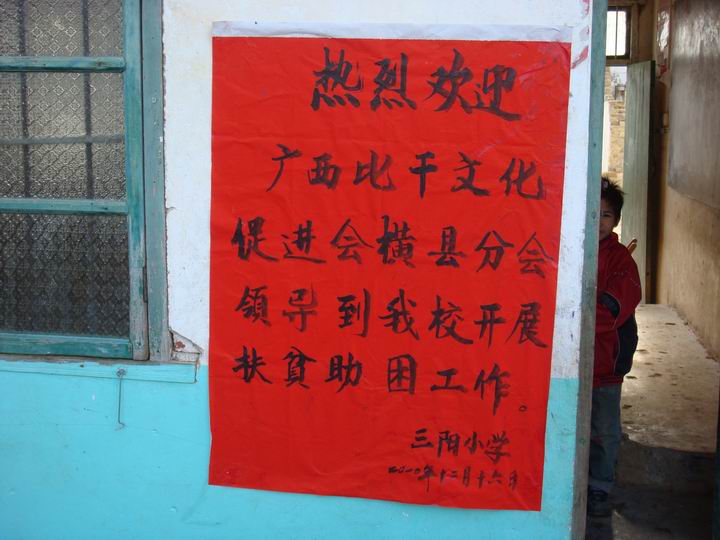 热烈欢迎
广西比干文化
促进会横县分会
领导到我校开展
扶贫助困工作。
三阳小学
二〇一〇年十二月十六日